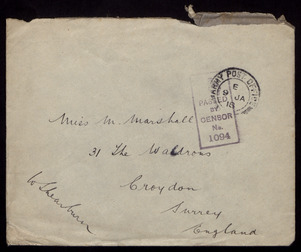 ARMY POST OFFICE
E
9 JA
18
PASSED
BY
CENSOR
No.
1094
Miss M. Marshall
31 The Waldrons
Croydon
Surrey
England